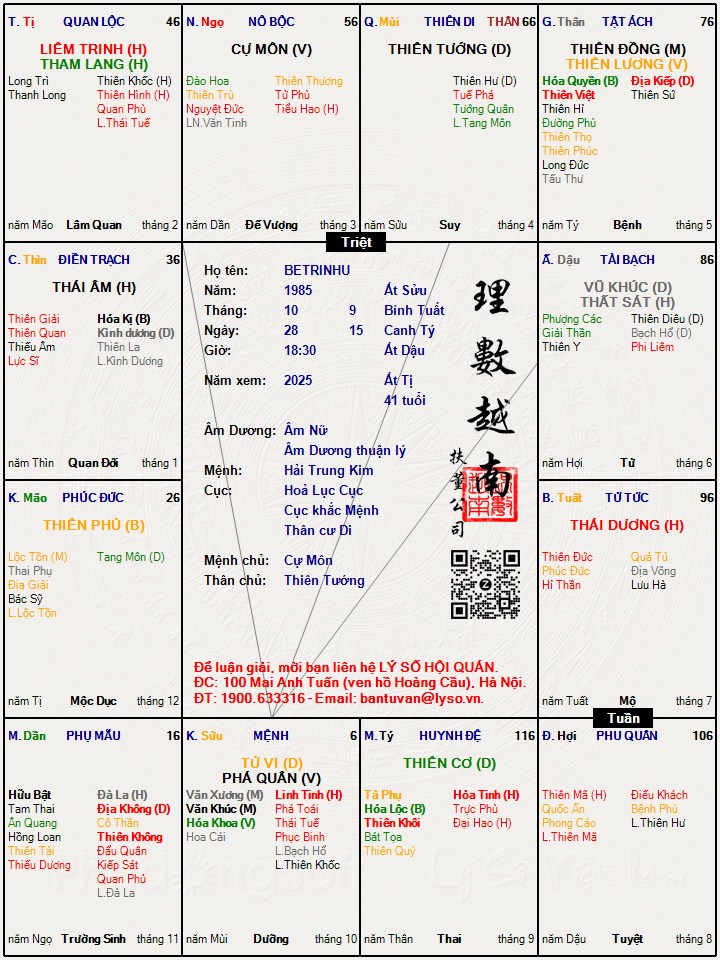 T. Tị QUAN LỘC 46
LIÊM TRINH (H)
THAM LANG (H)
Long Trì Thiên Khốc (H)
Thanh Long Thiên Hình (H)
Quan Phù
L.Thái Tuế
năm Mão Lâm Quan tháng 2
N. Ngọ NÔ BỘC 56
CỰ MÔN (V)
Đào Hoa Thiên Thương
Thiên Trù Tử Phù
Nguyệt Đức Tiểu Hao (H)
LN.Văn Tinh
năm Dần Đế Vượng tháng 3
Q. Mùi THIÊN DI THÂN 66
THIÊN TƯỚNG (D)
Thiên Hư (D)
Tuế Phá
Tướng Quân
L.Tang Môn
năm Sửu Suy tháng 4
G. Thân TẬT ÁCH 76
THIÊN ĐỒNG (M)
THIÊN LƯƠNG (V)
Hóa Quyền (B) Địa Kiếp (D)
Thiên Việt Thiên Sứ
Thiên Hỉ
Đường Phù
Thiên Thọ
Thiên Phúc
Long Đức
Tấu Thư
năm Tý Bệnh tháng 5
Triệt
C. Thìn ĐIỀN TRẠCH 36
THÁI ÂM (H)
Thiên Giải Hóa Kị (B)
Thiên Quan Kình dương (D)
Thiếu Âm Thiên La
Lực Sĩ L.Kình Dương
năm Thìn Quan Đới tháng 1
Họ tên: BETRINHU
Năm: 1985 Ất Sửu
Tháng: 10 9 Bính Tuất
Ngày: 28 15 Canh Tý
Giờ: 18:30 Ất Dậu
Năm xem: 2025 Ất Tị
41 tuổi
Âm Dương: Âm Nữ
Âm Dương thuận lý
Mệnh: Hải Trung Kim
Cục: Hoả Lục Cục
Cục khắc Mệnh
Thân cư Di
Mệnh chủ: Cự Môn
Thân chủ: Thiên Tướng
理數越南
扶董公司
Để luận giải, mời bạn liên hệ LÝ SỐ HỘI QUÁN.
ĐC: 100 Mai Anh Tuấn (ven hồ Hoàng Cầu), Hà Nội.
ĐT: 1900.633316 - Email: bantuvan@lyso.vn.
Ấ. Dậu TÀI BẠCH 86
VŨ KHÚC (D)
THẤT SÁT (H)
Phượng Các Thiên Diêu (D)
Giải Thần Bạch Hổ (D)
Thiên Y Phi Liêm
năm Hợi Tử tháng 6
K. Mão PHÚC ĐỨC 26
THIÊN PHỦ (B)
Lộc Tồn (M) Tang Môn (D)
Thai Phụ
Địa Giải
Bác Sỹ
L.Lộc Tồn
năm Tị Mộc Dục tháng 12
B. Tuất TỬ TỨC 96
THÁI DƯƠNG (H)
Thiên Đức Quả Tú
Phúc Đức Địa Võng
Hỉ Thần Lưu Hà
năm Tuất Mộ tháng 7
Tuần
M. Dần PHỤ MẪU 16
Hữu Bật Đà La (H)
Tam Thai Địa Không (D)
Ân Quang Cô Thần
Hồng Loan Thiên Không
Thiên Tài Đẩu Quân
Thiếu Dương Kiếp Sát
Quan Phủ
L.Đà La
năm Ngọ Trường Sinh tháng 11
K. Sửu MỆNH 6
TỬ VI (D)
PHÁ QUÂN (V)
Văn Xương (M) Linh Tinh (H)
Văn Khúc (M) Phá Toái
Hóa Khoa (V) Thái Tuế
Hoa Cái Phục Binh
L.Bạch Hổ
L.Thiên Khốc
năm Mùi Dưỡng tháng 10
M. Tý HUYNH ĐỆ 116
THIÊN CƠ (D)
Tả Phụ Hỏa Tinh (H)
Hóa Lộc (B) Trực Phù
Thiên Khôi Đại Hao (H)
Bát Tọa
Thiên Quý
năm Thân Thai tháng 9
Đ. Hợi PHU QUÂN 106
Thiên Mã (H) Điếu Khách
Quốc Ấn Bệnh Phù
Phong Cáo L.Thiên Hư
L.Thiên Mã
năm Dậu Tuyệt tháng 8